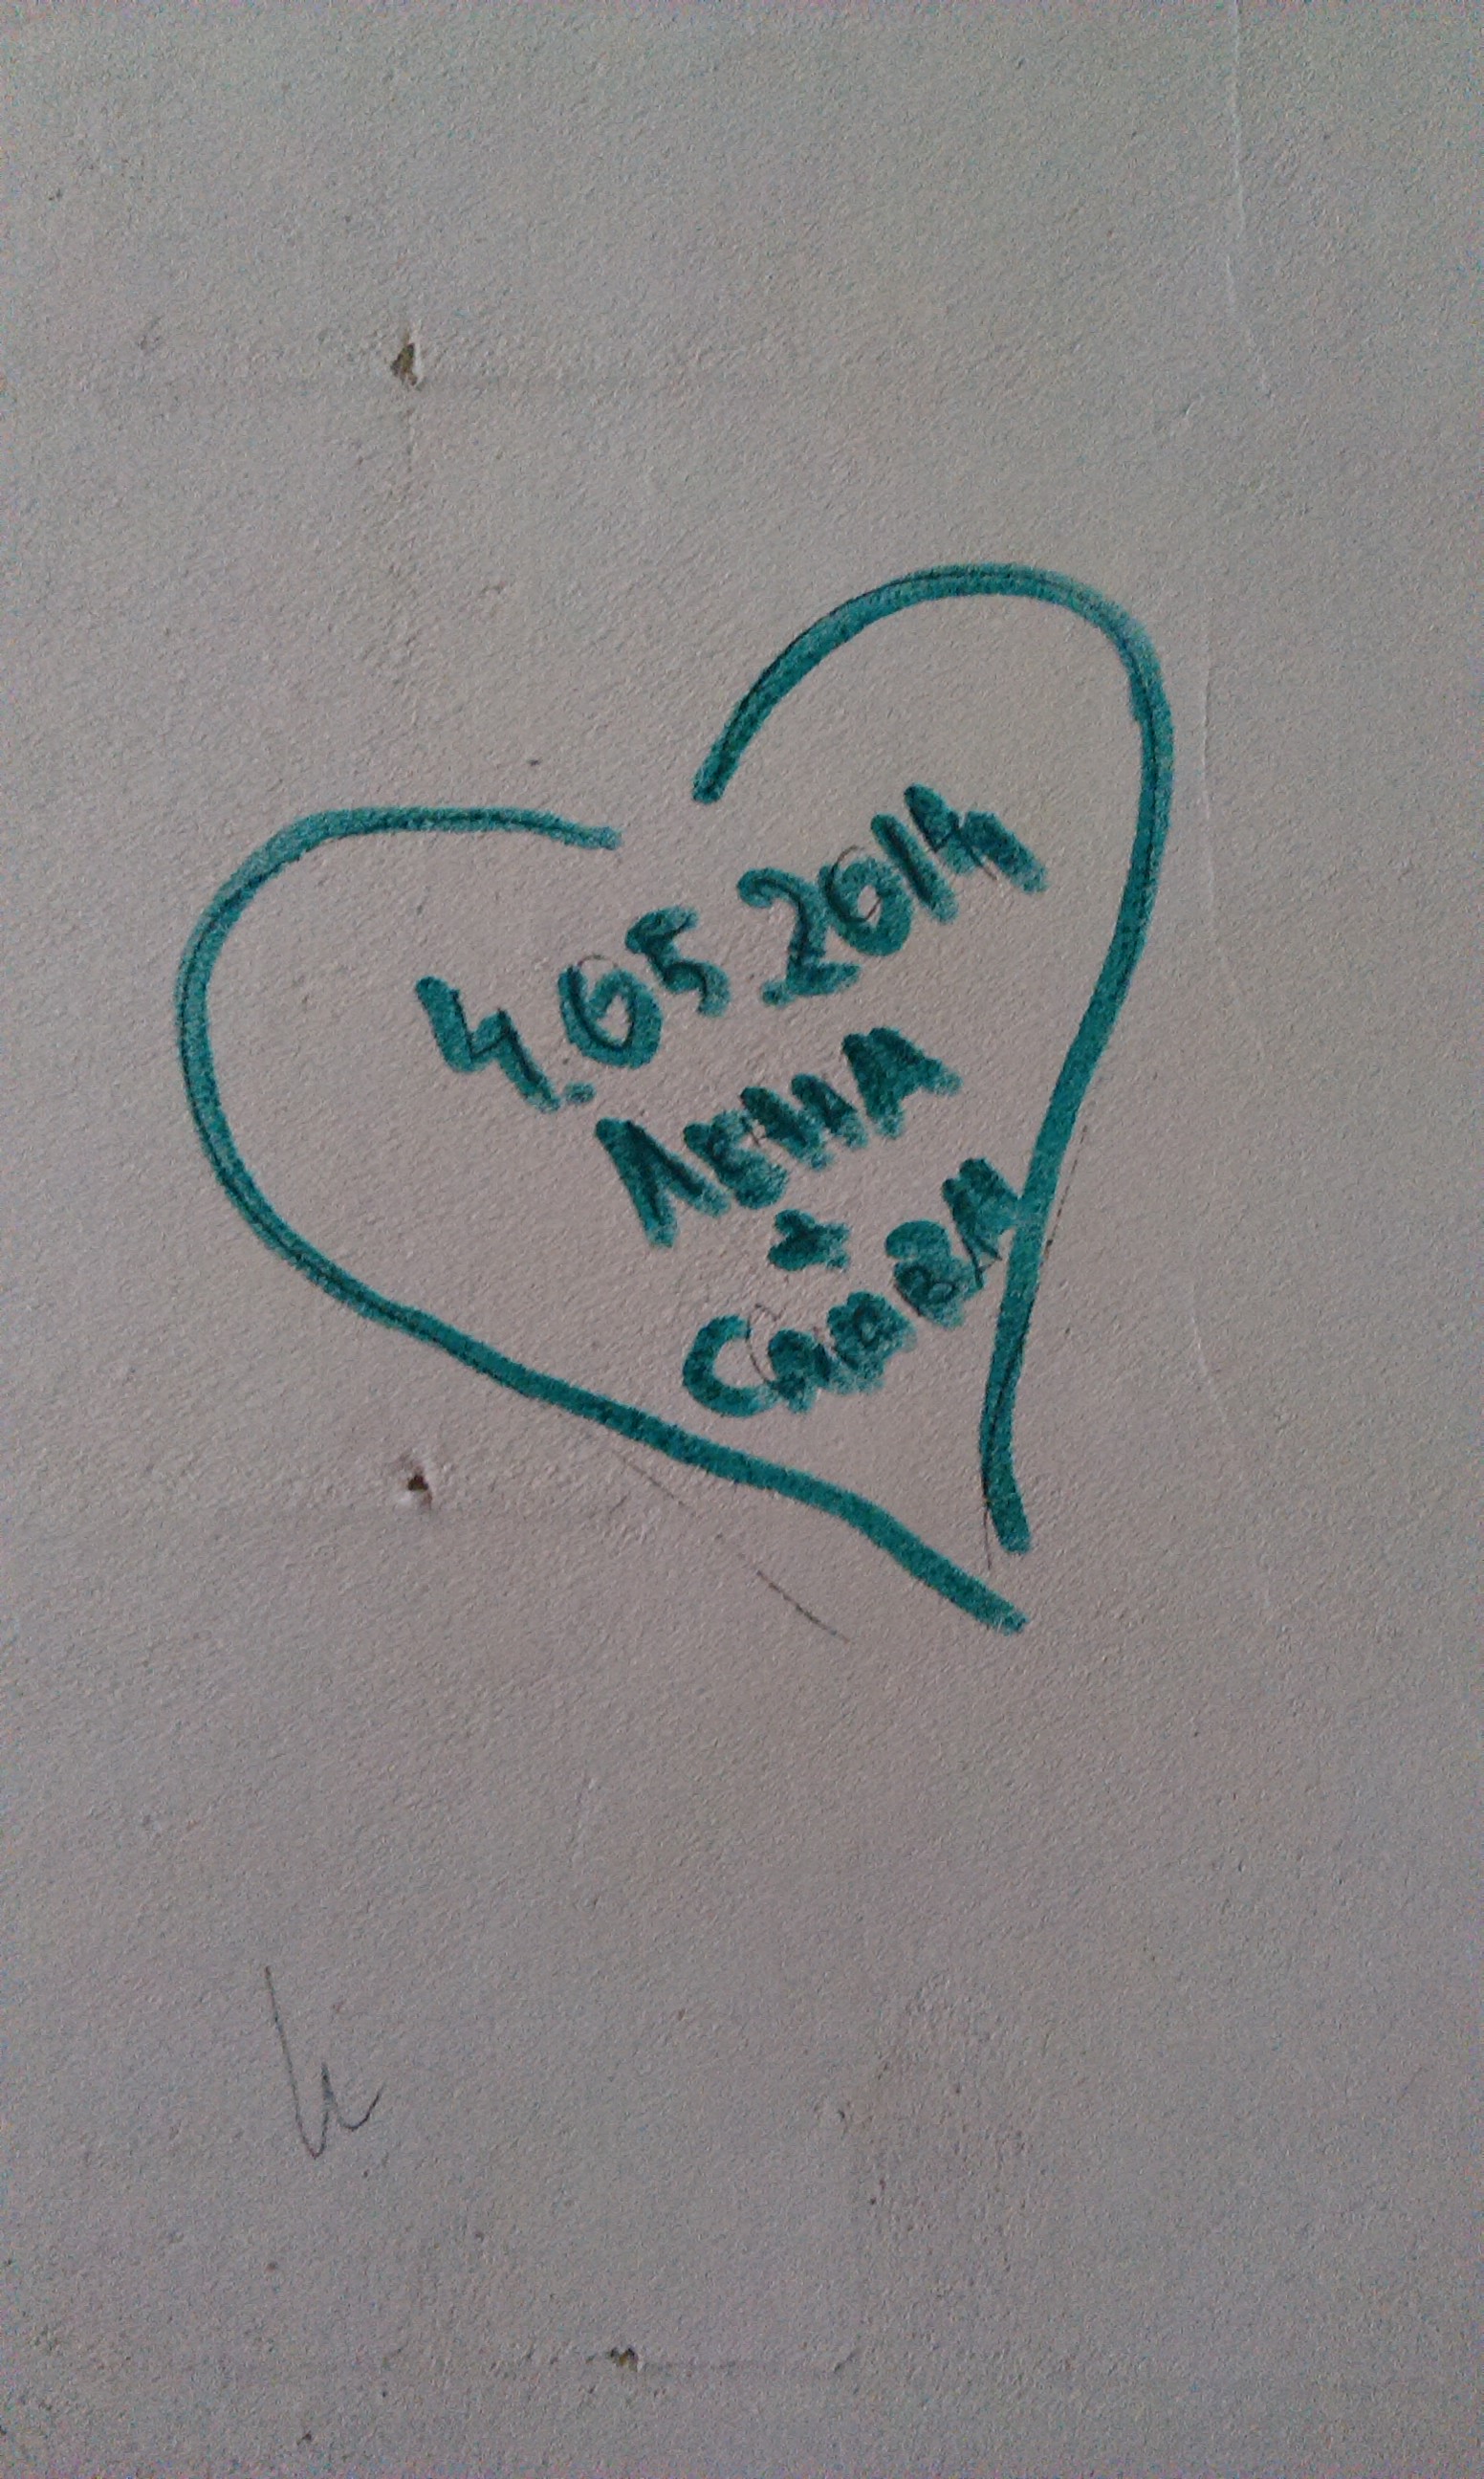 4.05.2014
ЛЕНА
+
СЛАВА